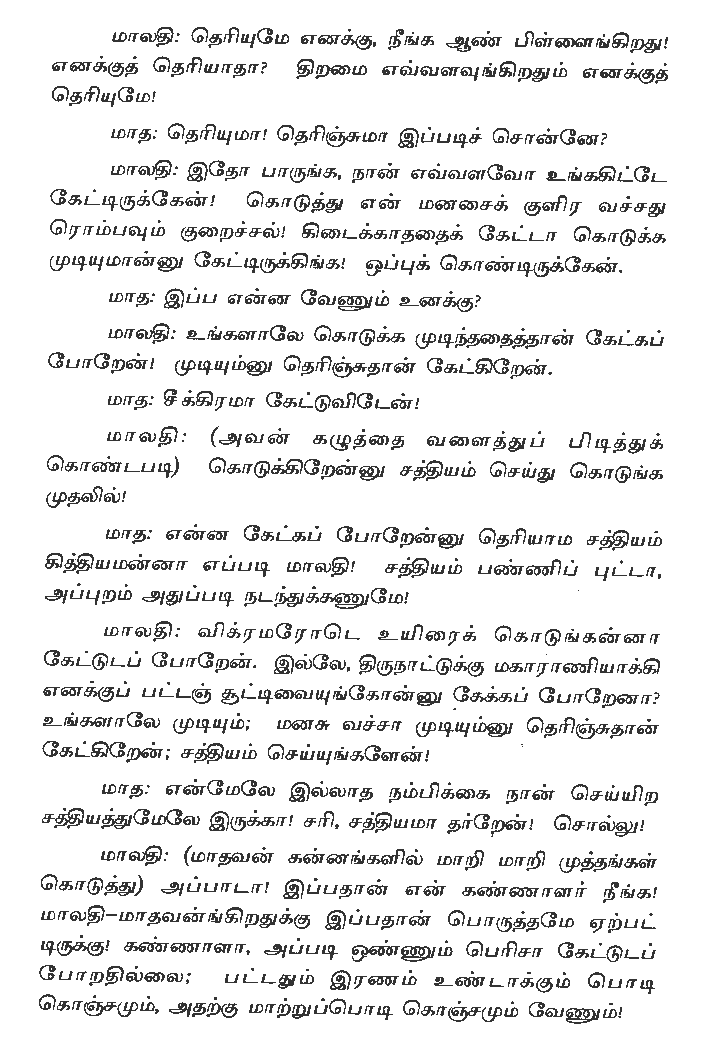 மாலதி: தெரியுமே எனக்கு, நீங்க ஆண் பிள்ளைங்கிறது!
எனக்குத் தெரியாதா? திறமை எவ்வளவுங்கிறதும் எனக்குத்
தெரியுமே!
மாத: தெரியுமா! தெரிஞ்சுமா இப்படிச் சொன்னே?
மாலதி: இதோ பாருங்க, நான் எவ்வளவோ உங்ககிட்டே
கேட்டிருக்கேன்! கொடுத்து என் மனசைக் குளிர வச்சது
ரொம்பவும் குறைச்சல்! கிடைக்காததைக் கேட்டா கொடுக்க
முடியுமாண்ணு கேட்டிருக்கிங்க! ஒப்புக் கொண்டிருக்கேன்.
மாத: இப்ப என்ன வேணும் உனக்கு?
மாலதி: உங்களாலே கொடுக்க முடிந்ததைத்தான் கேட்கப்
போறேன்! முடியும்னு தெரிஞ்சுதான் கேட்கிறேன்.
மாத: சீக்கிரமா கேட்டுவிடேன்!
மாலதி: (அவன் கழுத்தை வளைத்துப் பிடித்துக்
கொண்டபடி) கொடுக்கிறேன்னு சத்தியம் செய்து கொடுங்க
முதலில்!
மாத: என்ன கேட்கப் போறேன்னு தெரியாம சத்தியம்
கித்தியமன்னா எப்படி மாலதி! சத்தியம் பண்ணிப் புட்டா,
அப்புறம் அதுப்படி நடந்துக்கணுமே!
மாலதி: விக்ரமரோடெ உயிரைக் கொடுங்கன்னா
கேட்டுடப் போறேன். இல்லே, திருநாட்டுக்கு மகாராணியாக்கி
எனக்குப் பட்டஞ் சூட்டிவையுங்கோன்னு கேக்கப் போறேனா?
உங்களாலே முடியும்; மனசு வச்சா முடியும்னு தெரிஞ்சுதான்
கேட்கிறேன்; சத்தியம் செய்யுங்களேன்!
மாத: என்மேலே இல்லாத நம்பிக்கை நான் செய்யிற
சத்தியத்துமேலே இருக்கா! சரி, சத்தியமா தர்றேன்! சொல்லு!
மாலதி: (மாதவன் கன்னங்களில் மாறி மாறி முத்தங்கள்
கொடுத்து) அப்பாடா! இப்பதான் என் கண்ணாளர் நீங்க!
மாலதி–மாதவன்ங்கிறதுக்கு இப்பதான் பொருத்தமே ஏற்பட்
டிருக்கு! கண்ணாளா, அப்படி ஒண்ணும் பெரிசா கேட்டுடப்
போறதில்லை; பட்டதும் இரணம் உண்டாக்கும் பொடி
கொஞ்சமும், அதற்கு மாற்றுப்பொடி கொஞ்சமும் வேணும்!